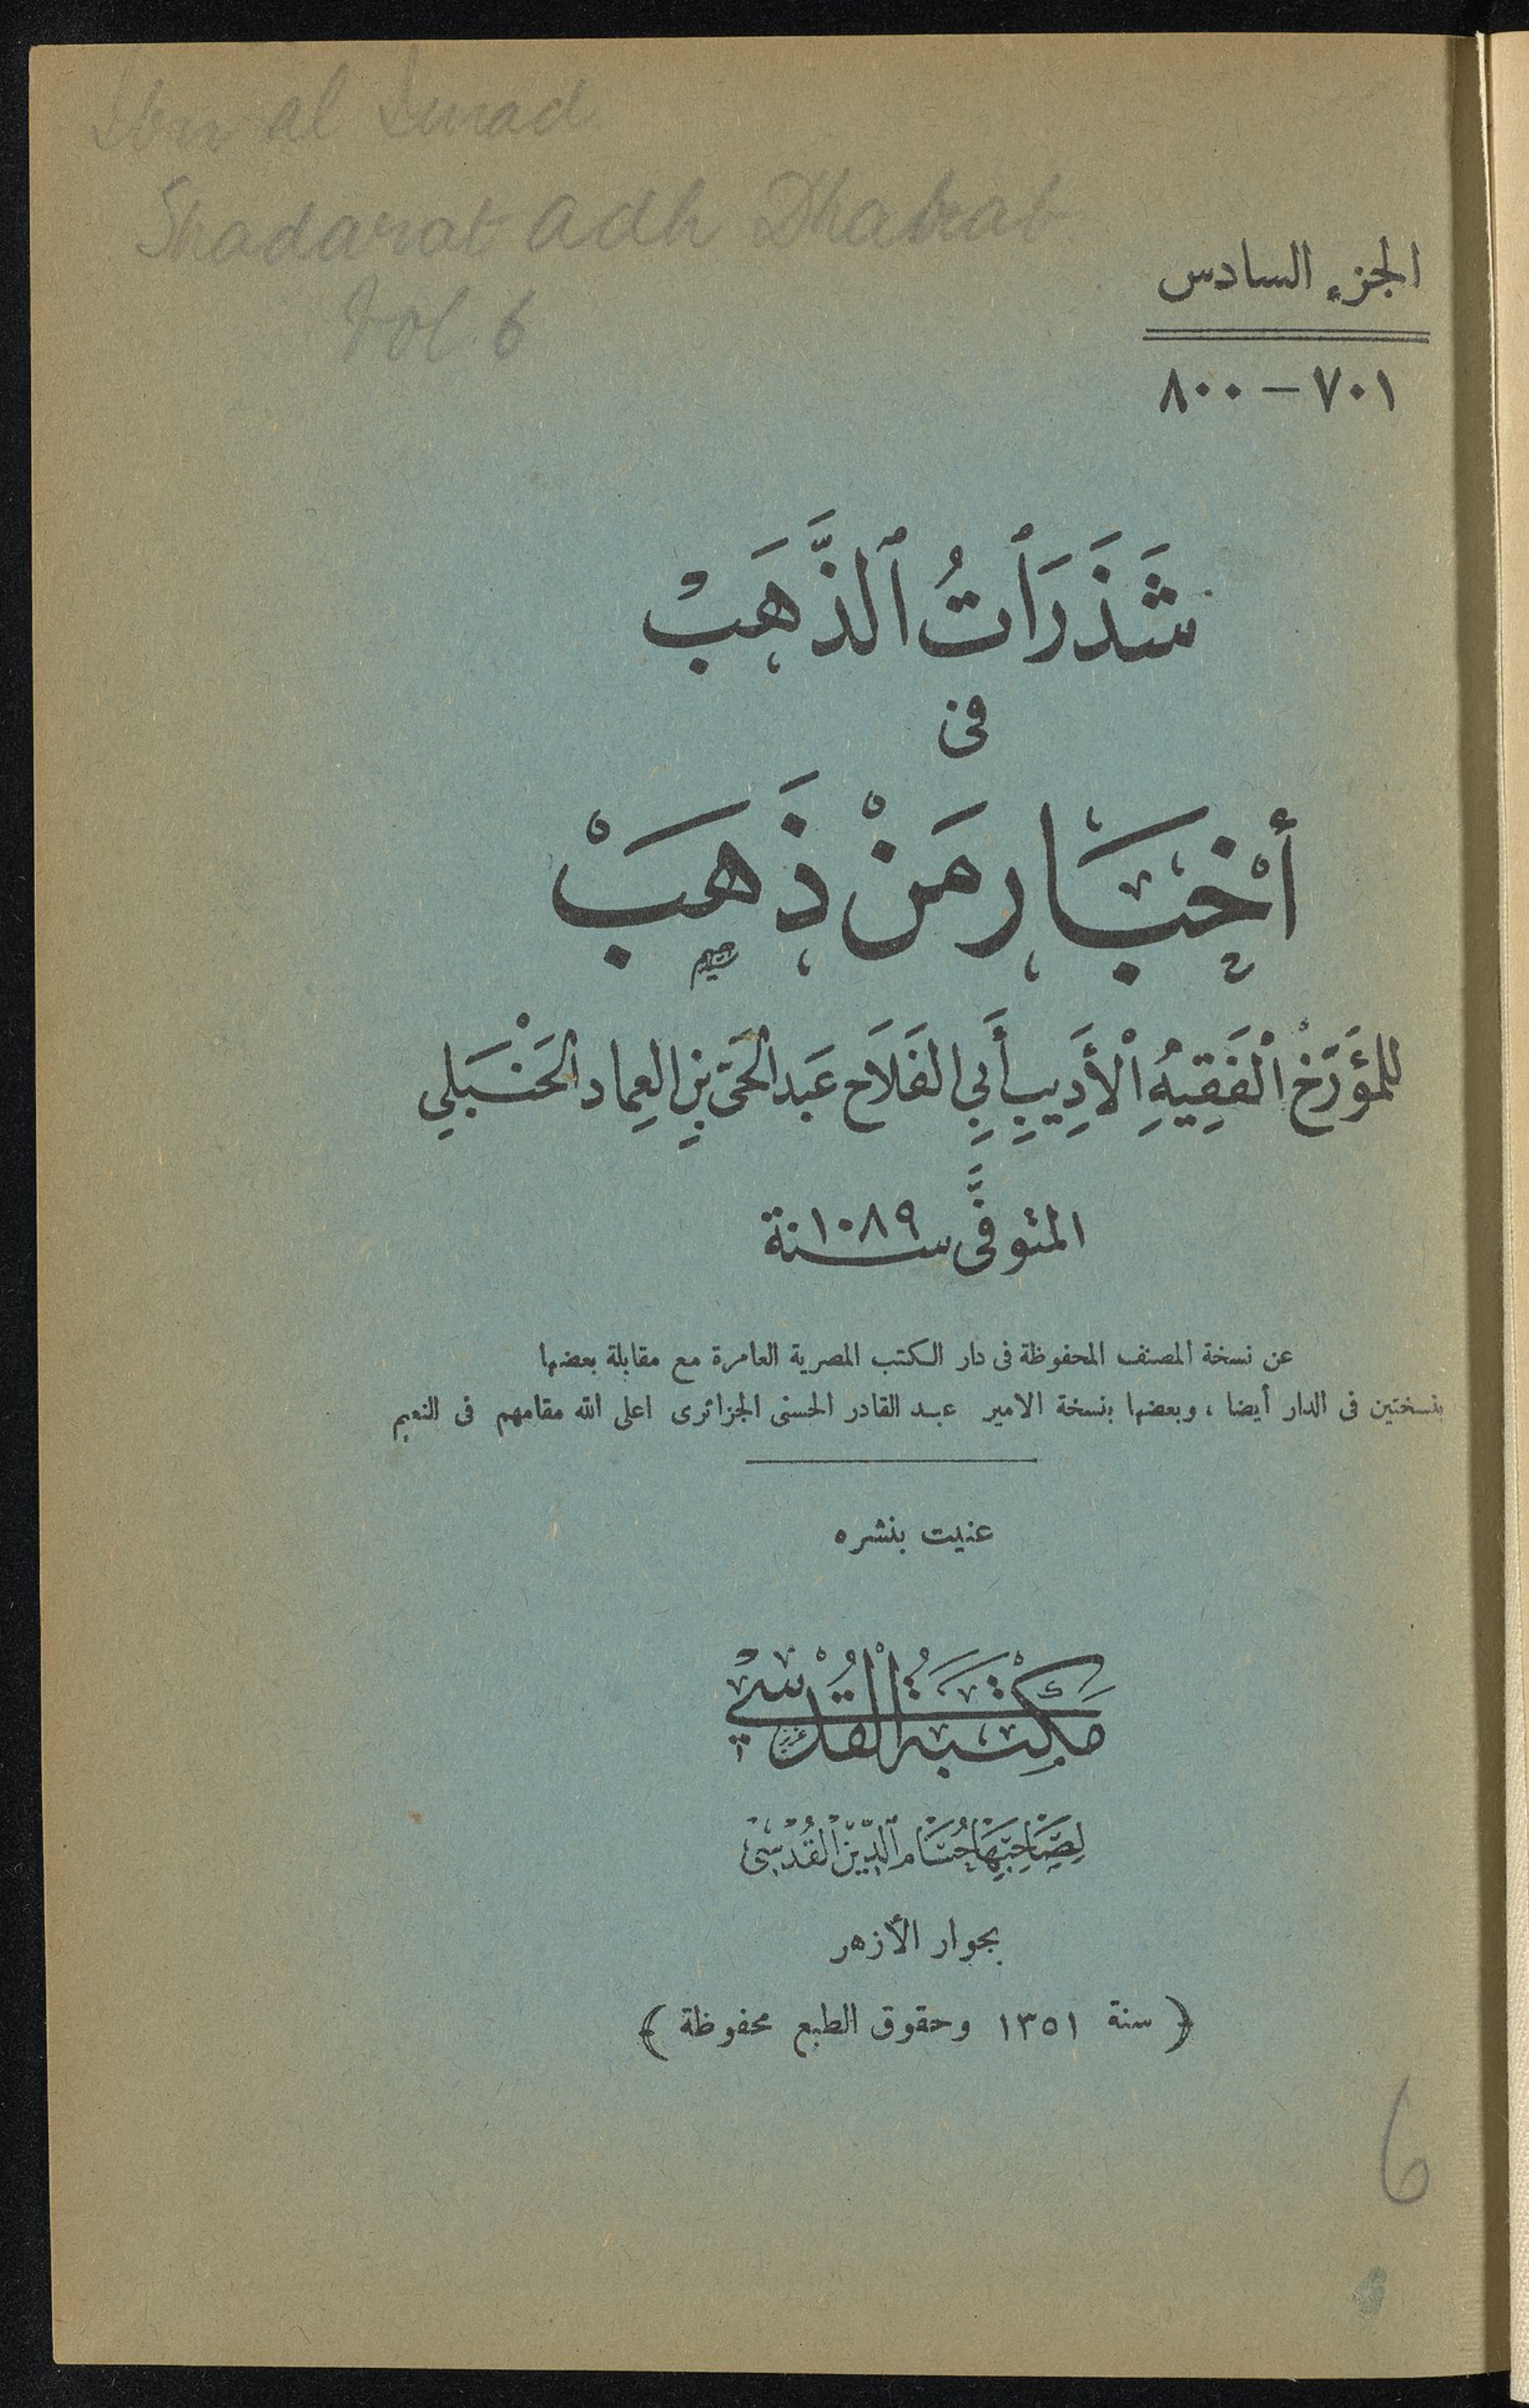 Ibn al Imad
Shadarat adh Dhahab
Vol. 6
الجزء السادس
٧٠١ — ٨٠٠
شَذَرَاتُ ٱلذَّهَبْ
فى
أَخْبَار مَنْ ذَهَبَْ
للمؤَرّخْ ٱلْفَقِيهِ ٱلْأَدِيبِ أَبِي الفَلَاح عَبد الحَىّ بنِ العِماد الحَنْبَلِي
المتوفَّى سنة ١٠٨٩
عن نسخة المصنف المحفوظة فى دار الكتب المصرية العامرة مع مقابلة بعضها
بنسختين فى الدار أيضا ، وبعضها بنسخة الامير عبد القادر الحسنى الجزائرى اعلى الله مقامهم فى النعيم
عنيت بنشره
مَكْتَبَةُ الْقُدْسِي
لِصَاحِبِهَا حُسَام ٱلدِّيْن الْقُدْسِى
بجوار الأزهر
﴿ سنة ١٣٥١ وحقوق الطبع محفوظة ﴾
6